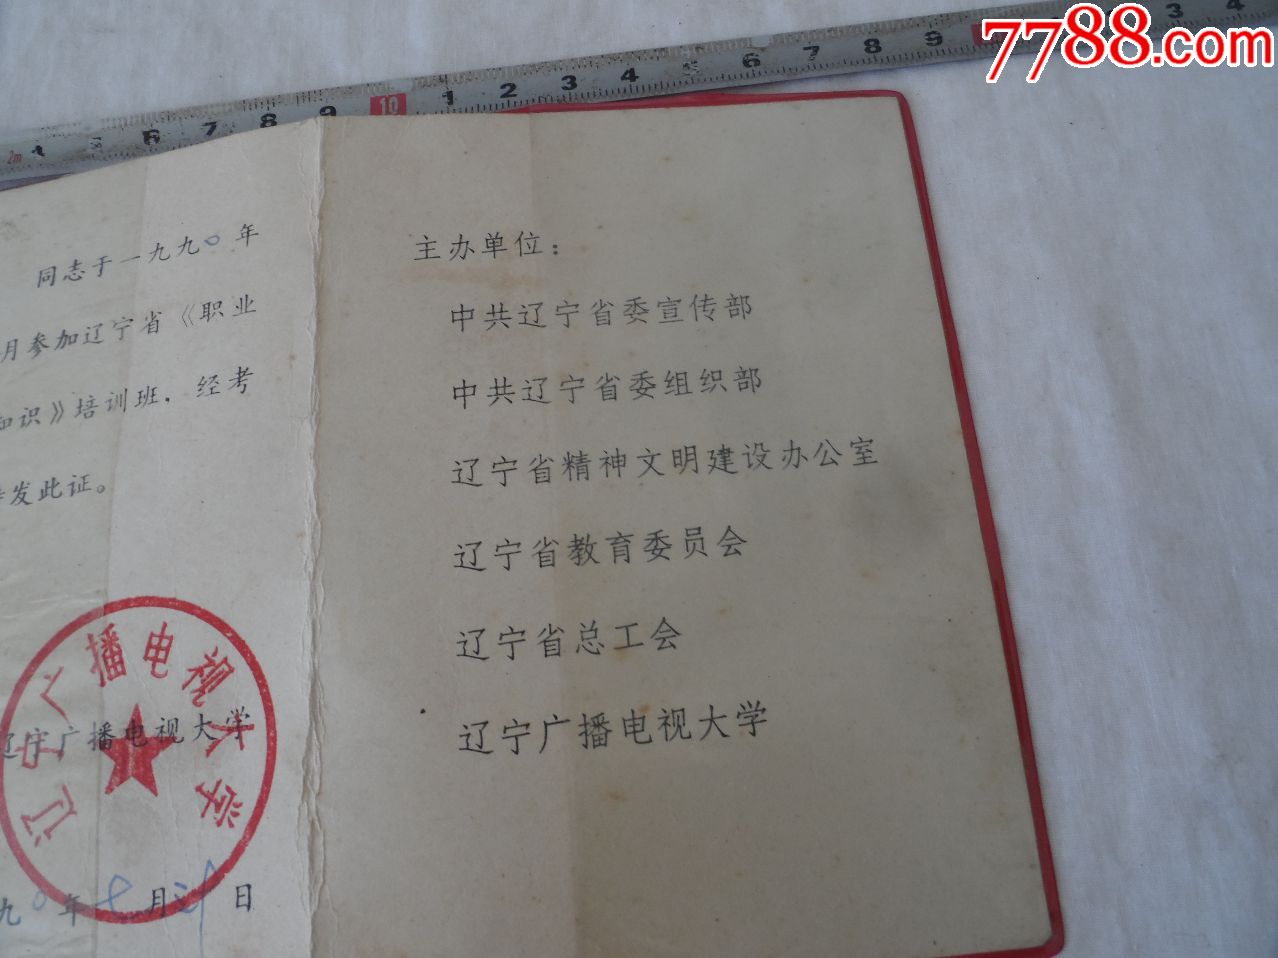 7788.com
同志于一九九〇年
月参加辽宁省《职业
知识》培训班，经考
发此证。
辽宁广播电视大学
辽宁广播电视大学
九〇年十月 日
主办单位：
中共辽宁省委宣传部
中共辽宁省委组织部
辽宁省精神文明建设办公室
辽宁省教育委员会
辽宁省总工会
辽宁广播电视大学
2m 4 5 6 7 8 9 10 1 2 3 4 5 6 7 8 9 3 4